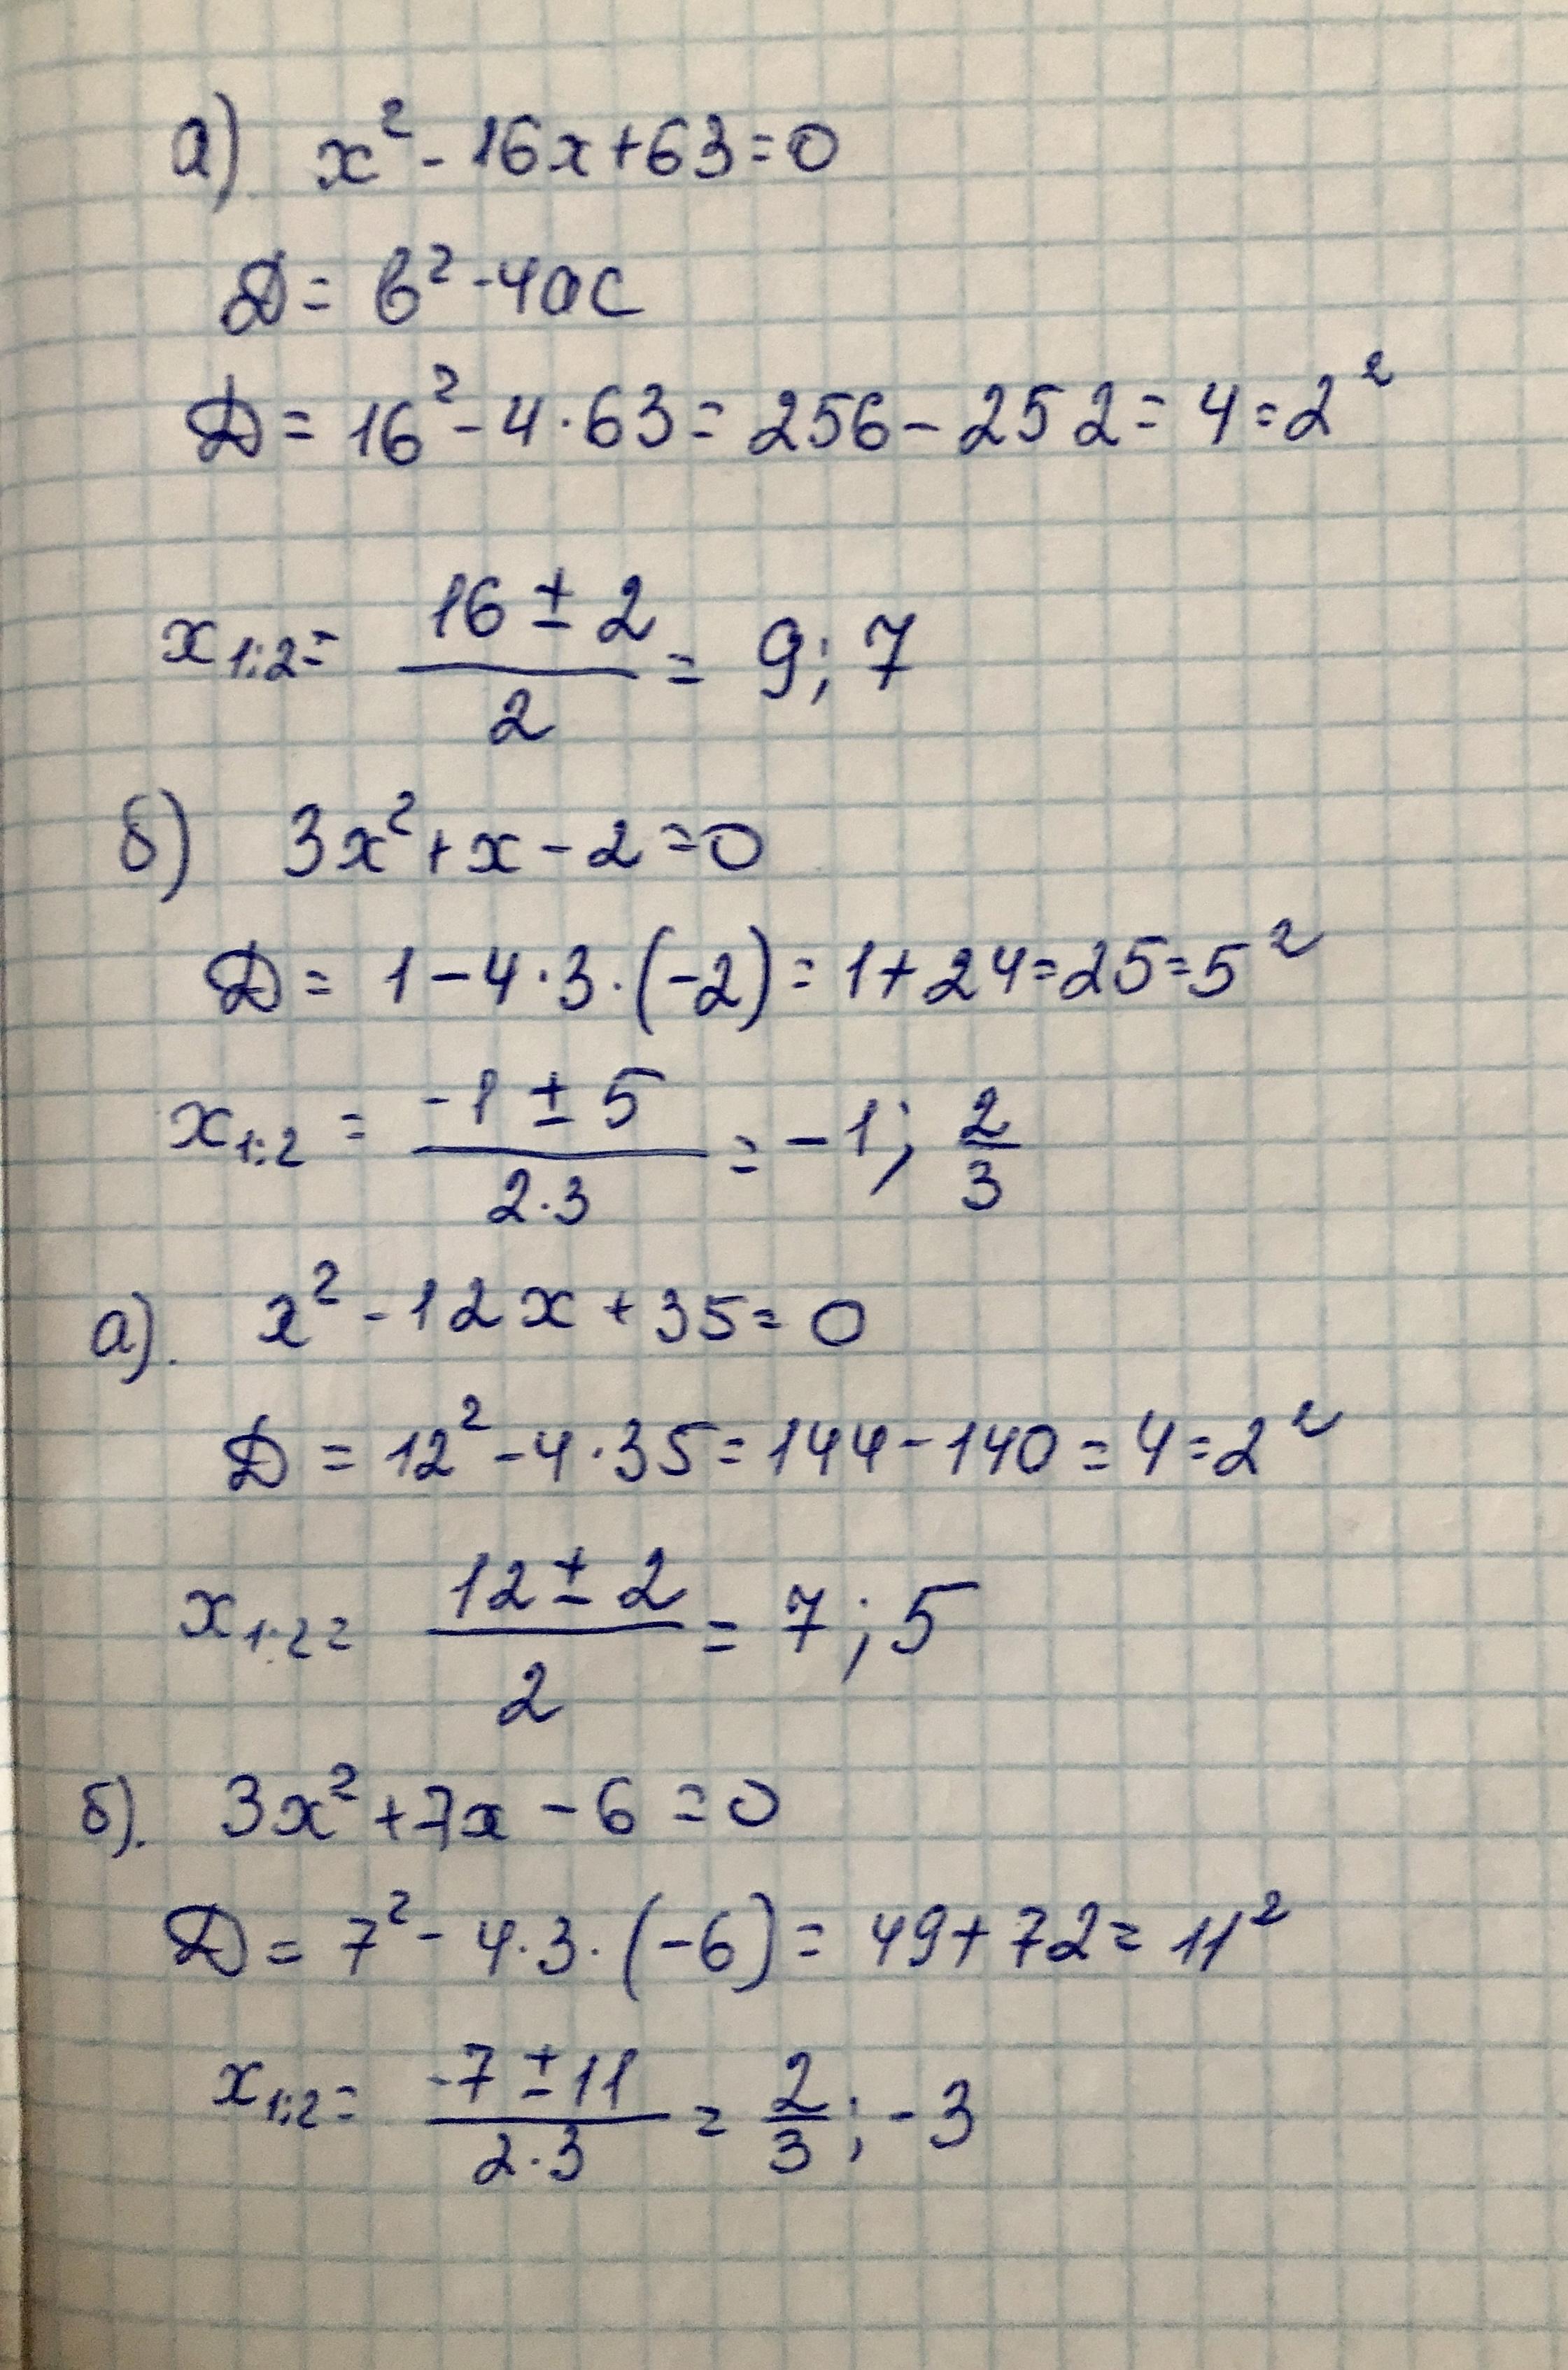 а) x² - 16x + 63 = 0
D = b² - 4ac
D = 16² - 4 · 63 = 256 - 252 = 4 = 2²
x₁;₂ = (16 ± 2)/2 = 9; 7
б) 3x² + x - 2 = 0
D = 1 - 4 · 3 · (-2) = 1 + 24 = 25 = 5²
x₁;₂ = (-1 ± 5)/(2 · 3) = -1; 2/3
а). x² - 12x + 35 = 0
D = 12² - 4 · 35 = 144 - 140 = 4 = 2²
x₁;₂ = (12 ± 2)/2 = 7; 5
б). 3x² + 7x - 6 = 0
D = 7² - 4 · 3 · (-6) = 49 + 72 = 11²
x₁;₂ = (-7 ± 11)/(2 · 3) = 2/3; -3